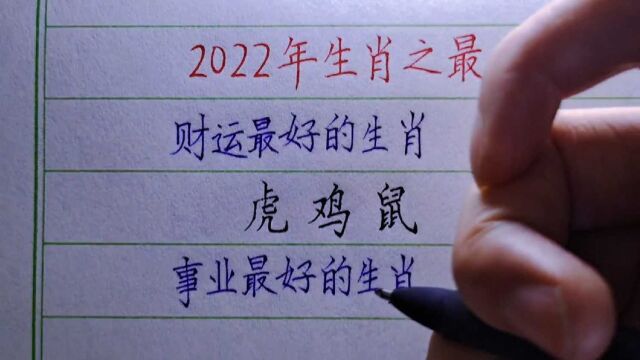 2022年生肖之最
财运最好的生肖
虎鸡鼠
事业最好的生肖